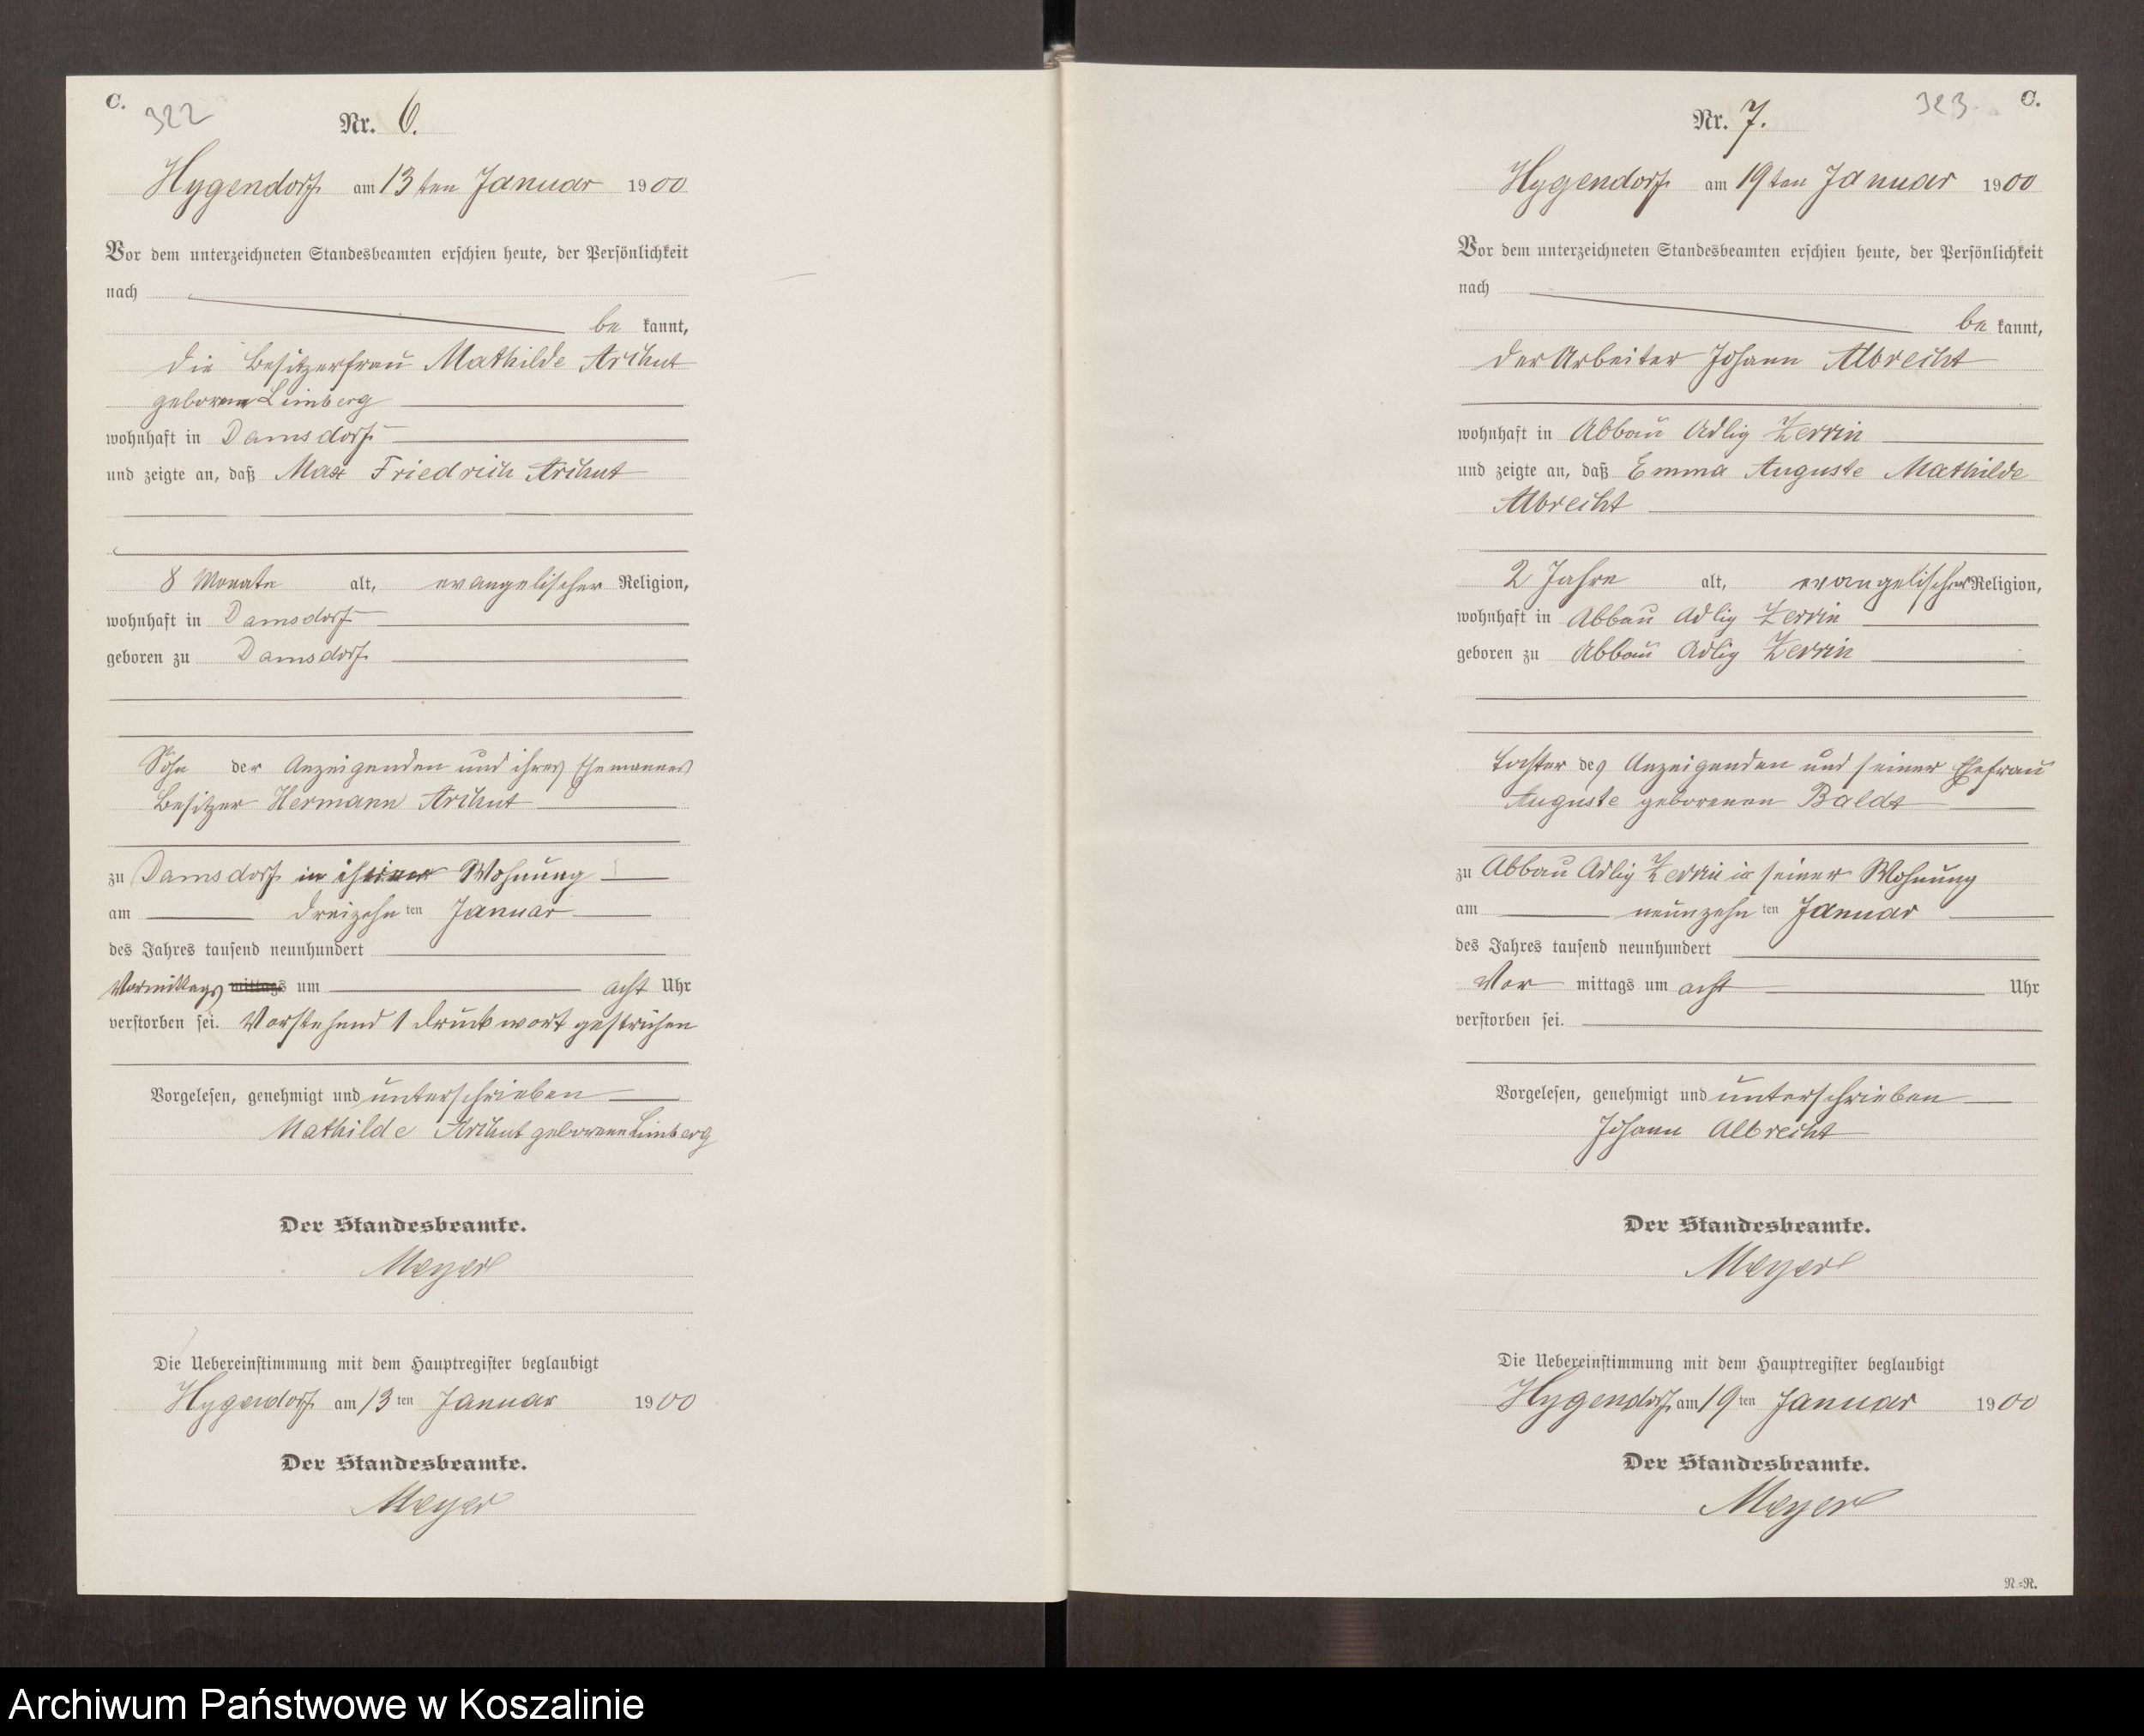 C.
322
Nr. 6.
Hygendorf am 13ten Januar 1900
Vor dem unterzeichneten Standesbeamten erschien heute, der Persönlichkeit
nach
be kannt,
die Besitzerfrau Mathilde Arthut
geborene Limberg
wohnhaft in Damsdorf
und zeigte an, daß Max Friedrich Arthut
8 Monate alt, evangelischer Religion,
wohnhaft in Damsdorf
geboren zu Damsdorf
Sohn der Anzeigenden und ihres Ehemannes
Besitzer Hermann Arthut
zu Damsdorf in ihrer Wohnung
am dreizehn ten Januar
des Jahres tausend neunhundert
Vormittags mittags um acht Uhr
verstorben sei. Vorstehend 1 Druckwort gestrichen
Vorgelesen, genehmigt und unterschrieben
Mathilde Arthut geborene Limberg
Der Standesbeamte.
Meyer
Die Uebereinstimmung mit dem Hauptregister beglaubigt
Hygendorf am 13 ten Januar 1900
Der Standesbeamte.
Meyer
323.
C.
Nr. 7.
Hygendorf am 19ten Januar 1900
Vor dem unterzeichneten Standesbeamten erschien heute, der Persönlichkeit
nach
be kannt,
der Arbeiter Johann Albrecht
wohnhaft in Abbau Adlig Zerrin
und zeigte an, daß Emma Auguste Mathilde
Albrecht
2 Jahre alt, evangelischer Religion,
wohnhaft in Abbau Adlig Zerrin
geboren zu Abbau Adlig Zerrin
Tochter des Anzeigenden und seiner Ehefrau
Auguste geborenen Baldt
zu Abbau Adlig Zerrin in seiner Wohnung
am neunzehn ten Januar
des Jahres tausend neunhundert
Vor mittags um acht Uhr
verstorben sei.
Vorgelesen, genehmigt und unterschrieben
Johann Albrecht
Der Standesbeamte.
Meyer
Die Uebereinstimmung mit dem Hauptregister beglaubigt
Hygendorf am 19 ten Januar 1900
Der Standesbeamte.
Meyer
N.=R.
Archiwum Państwowe w Koszalinie